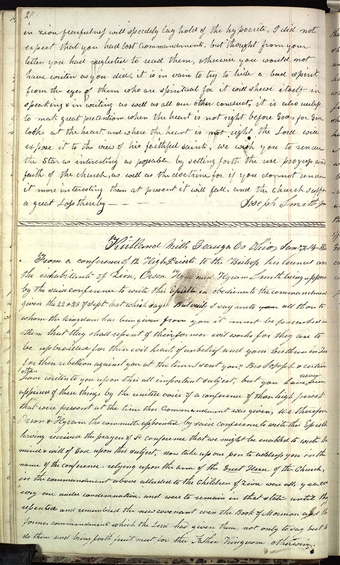 20
in zion fearfulness will speedily lay hold of the hypocrite, I did not
expect that you had lost commandments, but thought from your
letter you had neglected to read them, otherwise you would not
have written as you did, it is in vain to try to hide a bad spirit
from the eyes of them who are spiritual for it will shew itself in
speaking & in writing as well as all our other conduct, it is also useless
to make great pretentions when the heart is not right before God, for God
looks at the heart, and where the heart is not right the Lord will
expose it to the view of his faithful saints, we wish you to render
the Star as interesting as possable by setting forth the rise progress and
faith of the church, as well as the doctrine for if you do not render
it more interesting than at present it will fall, and the church suffer
a great Loss thereby — Joseph Smith Jr
Kirtland Mills Geauga Co Ohio, Jan 14
From a conference of 12 High Priests to the Bishop his Council and
the inhabitants of Zion, Orson Hyde and Hyrum Smith being appointed
by the said conference to write this Epistle in obedience to the commandment
given the 22 & 23 of Sept last which says But verily I say unto you all those to
whom the kingdom has been given from you it must be preached unto
them that they shall repent of their former evil works for they are to
be upbraided for their evil heart of unbelief and your brethren in Zion
for their rebellion against you at the time I sent you, Bro Joseph & certain
others have written to you upon this all important subject, but you have never been
apprised of these things by the united voice of a conference of those high priests
that were present at the time this commandment was given, We therefore
Orson & Hyrum the committe appointed by said conference to write this Epistle
having received the prayers of Sd conference that we might be enabled to write the
mind & will of God upon this subject, now take up our pen to address you in the
name of the conference relying upon the arm of the Great Head of the Church,
in the commandment above alluded to the Children of Zion were all yea even
every one under condemnation and were to remain in that state until they
repented and remembered the new covenant even the Book of Mormon and the
former commandments which the Lord had given them not only to say but to
do them and bring forth fruit meet for the Father Kingdom otherwise